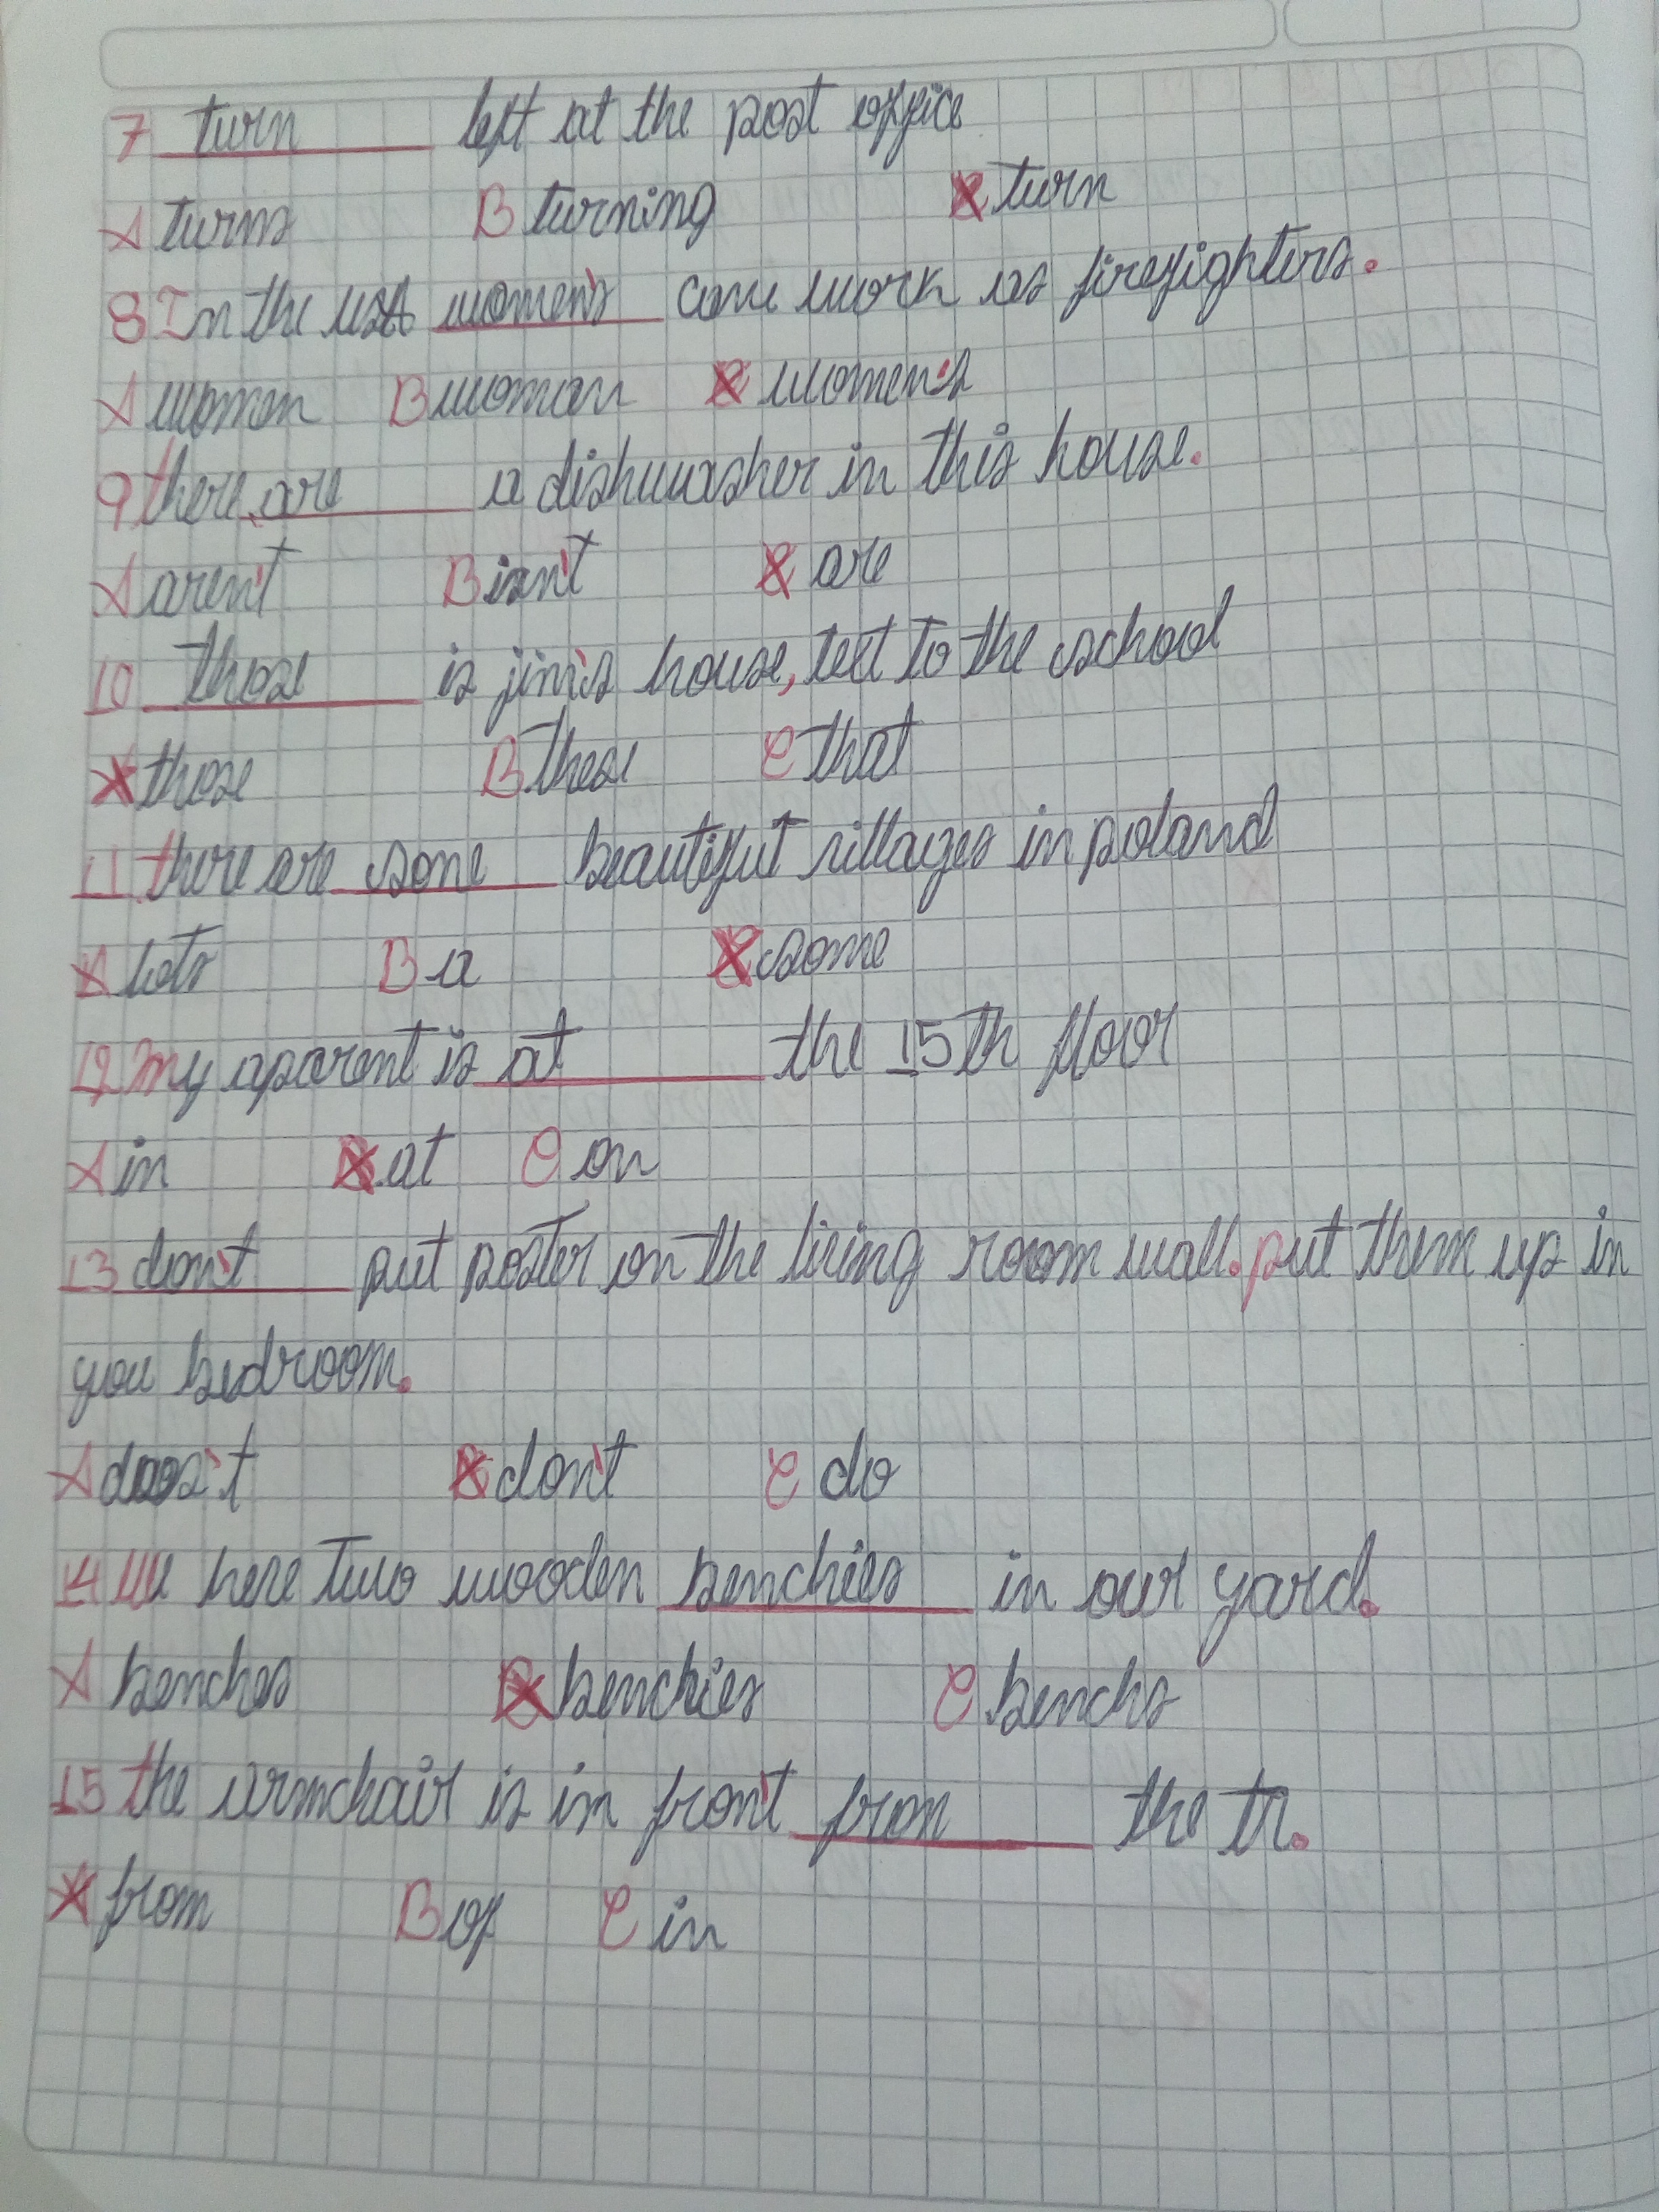 7 turn left at the post office
A turns B turning C turn
8 In the usa women's can work as firefighters.
A women B woman C women's
9 there are a dishwasher in this house.
A aren't B isn't C are
10 those is jim's house, text to the school
A those B these C that
11 there are some beautiful villages in poland
A lots B a C some
12 my aparent is at the 15th floor
A in B at C on
13 don't put poster on the living room wall. put them up in
you bedroom.
A does't B don't C do
14 We here two wooden benchies in our yard.
A benches B benchies C benchs
15 the armchair is in front from the tr.
A from B of C in